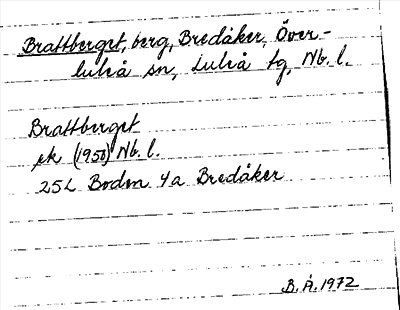 Brattberget, berg, Bredåker, Över-
luleå sn, Luleå tg, Nb. l.
Brattberget
ek (1950) Nb. l.
25L Boden 4a Bredåker
B. Å. 1972